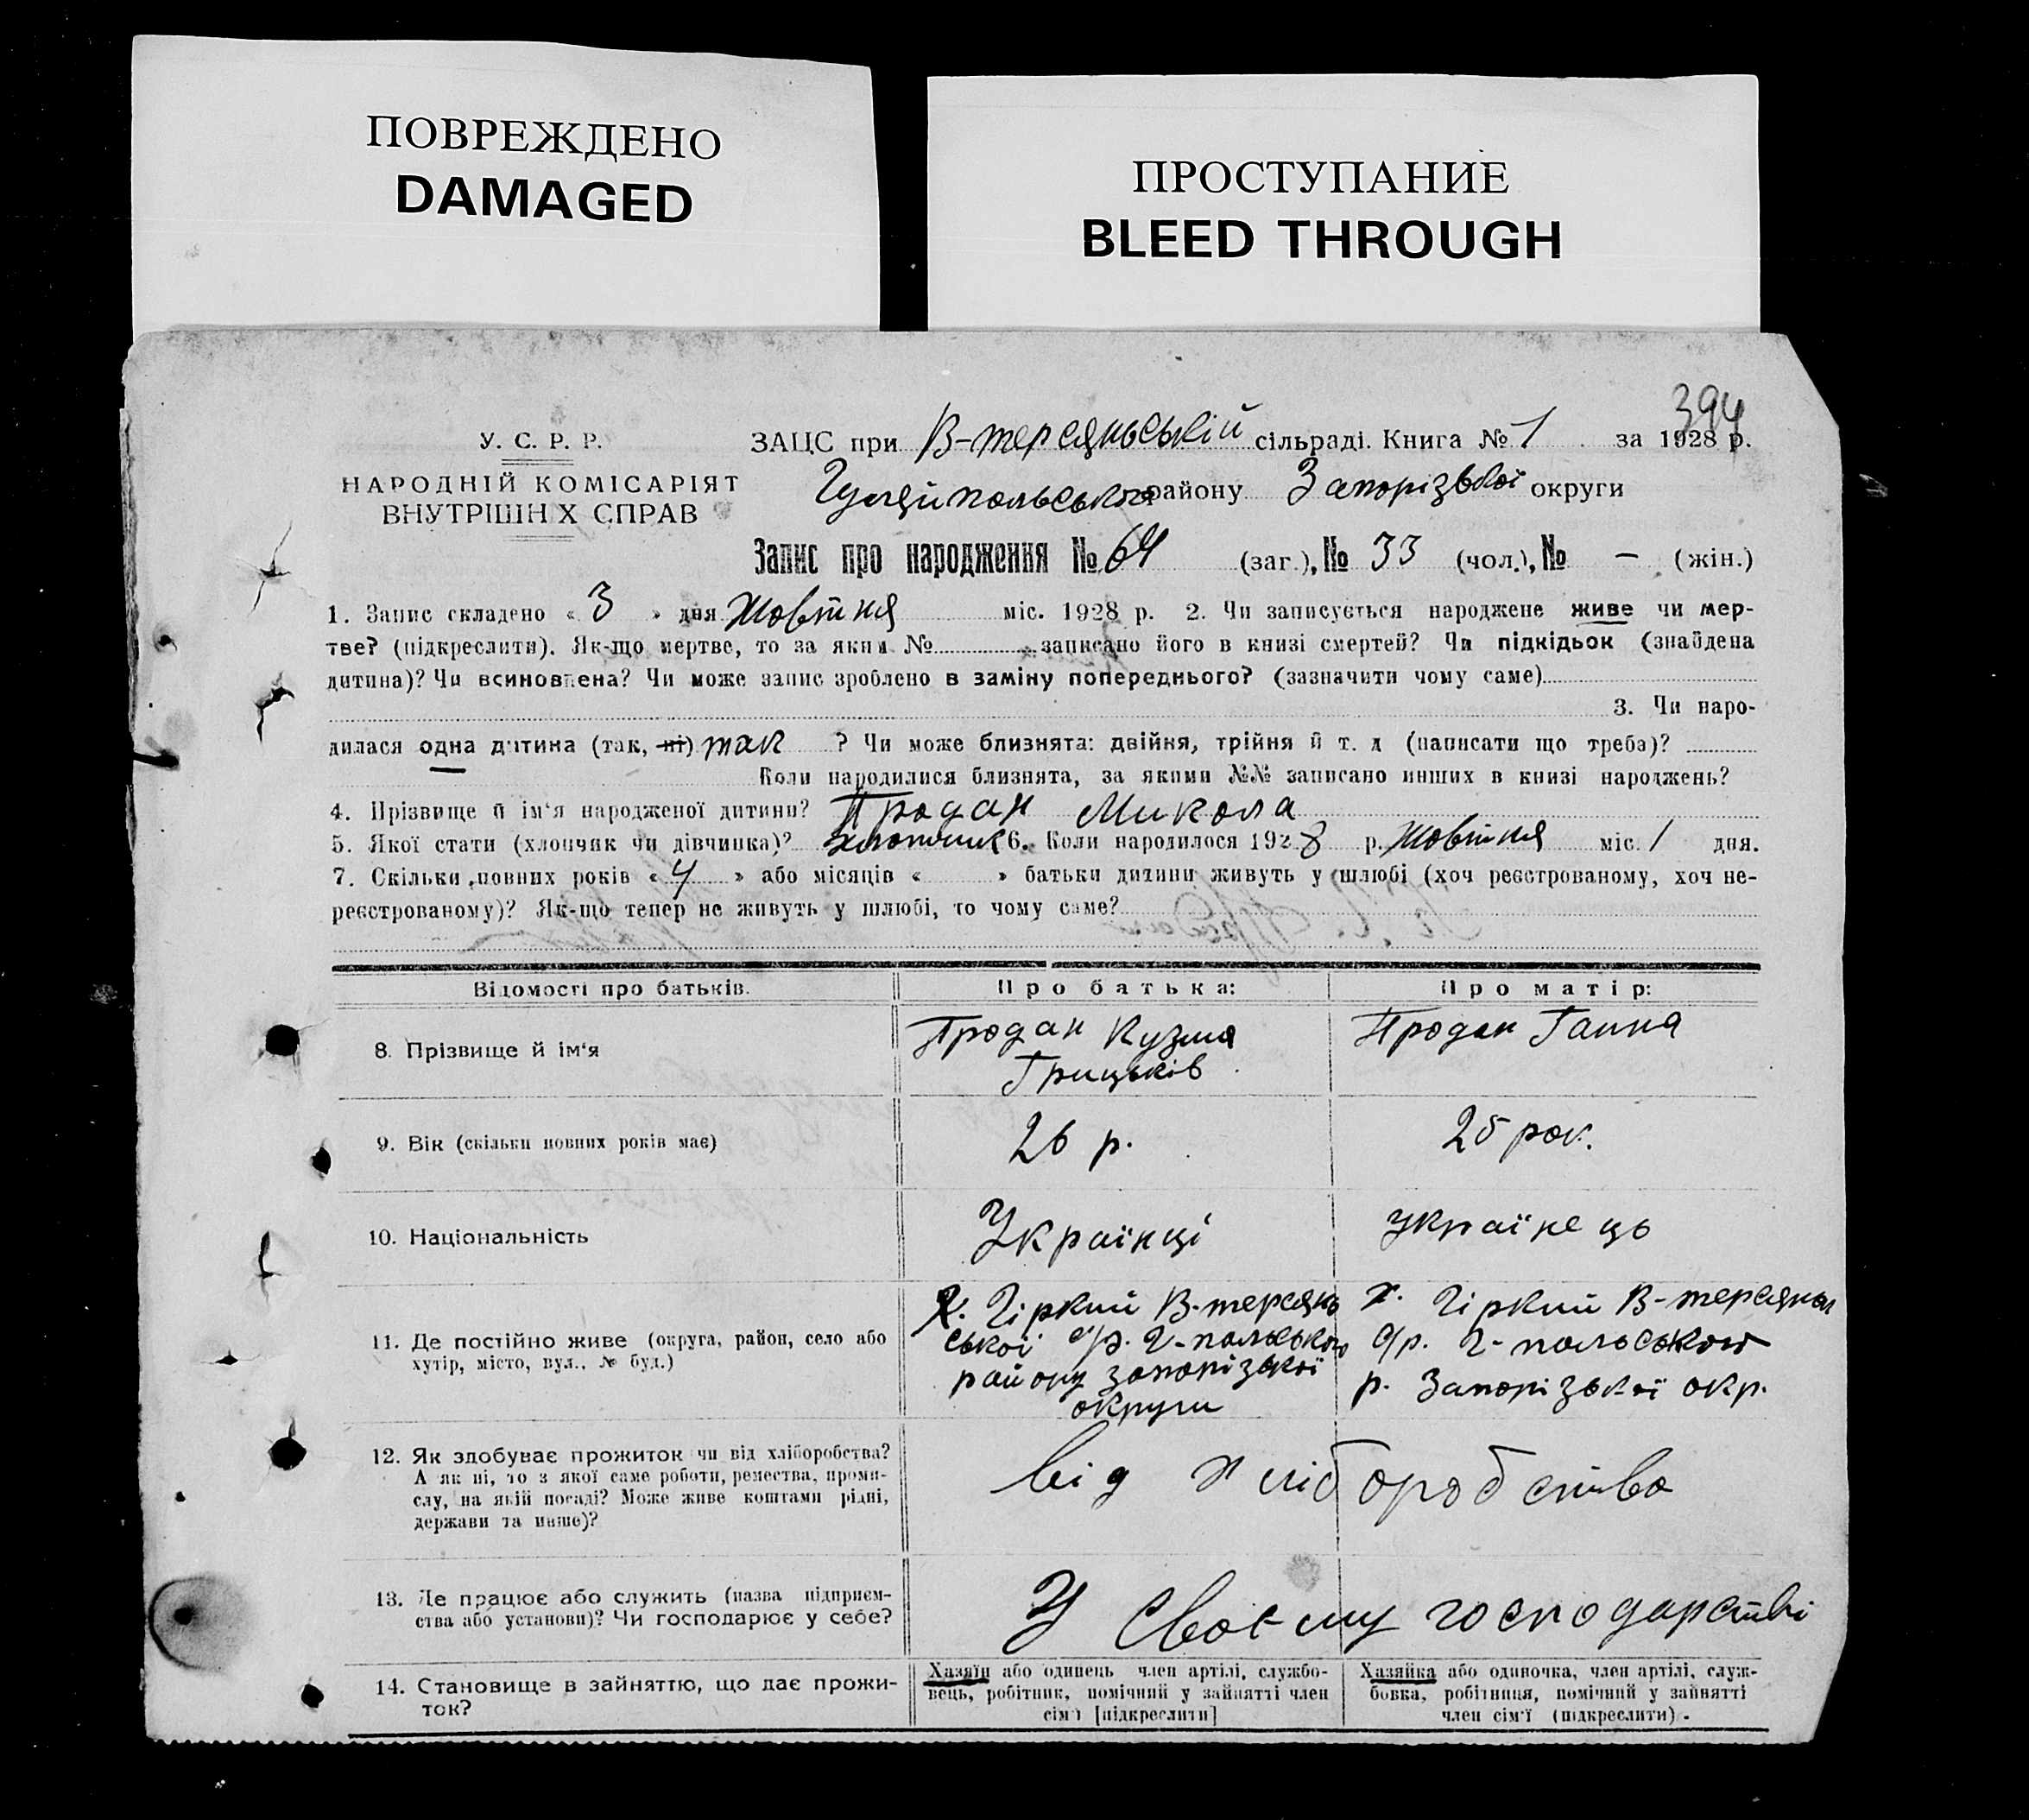 ПОВРЕЖДЕНО
DAMAGED
ПРОСТУПАНИЕ
BLEED THROUGH
394
У. С. Р. Р.
НАРОДНІЙ КОМІСАРІЯТ
ВНУТРІШНІХ СПРАВ
ЗАЦС при В-терсяньській сільраді. Книга № 1 за 1928 р.
Гуляйпольського району Запорізької округи
Запис про народження № 64 (заг.), № 33 (чол.), № — (жін.)
1. Запис складено « 3 » дня Жовтня міс. 1928 р. 2. Чи записується народжене живе чи мер-
тве? (підкреслити). Як-що мертве, то за яким № записано його в книзі смертей? Чи підкідьок (знайдена
дитина)? Чи всиновлена? Чи може запис зроблено в заміну попереднього? (зазначити чому саме)
3. Чи наро-
дилася одна дитина (так, ні) так ? Чи може близнята: двійня, трійня й т. д (написати що треба)?
Коли народилися близнята, за якими №№ записано инших в книзі народжень?
4. Прізвище й ім'я народженої дитини? Продан Микола
5. Якої стати (хлопчик чи дівчинка)? хлопчик 6. Коли народилося 1928 р. Жовтня міс. 1 дня.
7. Скільки повних років « 4 » або місяців « » батьки дитини живуть у шлюбі (хоч реєстрованому, хоч не-
реєстрованому)? Як-що тепер не живуть у шлюбі, то чому саме?
Відомості про батьків. Про батька: Про матір:
8. Прізвище й ім'я
Продан Кузма
Грицьків
Продан Ганна
9. Вік (скільки повних років має) 26 р. 25 рок.
10. Національність Українці українець
11. Де постійно живе (округа, район, село або
хутір, місто, вул., № буд.)
х. Гіркий В-терсянь
ської с/р. Г-польського
району запорізької
округи
х. Гіркий В-терсянськ
с/р. Г-польського
р. Запорізької окр.
12. Як здобуває прожиток чи від хліборобства?
А як ні, то з якої саме роботи, ремества, проми-
слу, на якій посаді? Може живе коштами рідні,
держави та инше)?
від хліборобства
13. Де працює або служить (назва підприєм-
ства або установи)? Чи господарює у себе?
У своєму господарстві
14. Становище в зайняттю, що дає прожи-
ток?
Хазяїн або одинець член артілі, службо-
вець, робітник, помічний у зайнятті член
сім'ї [підкреслити]
Хазяйка або одиночка, член артілі, служ-
бовка, робітниця, помічний у зайнятті
член сім'ї (підкреслити).